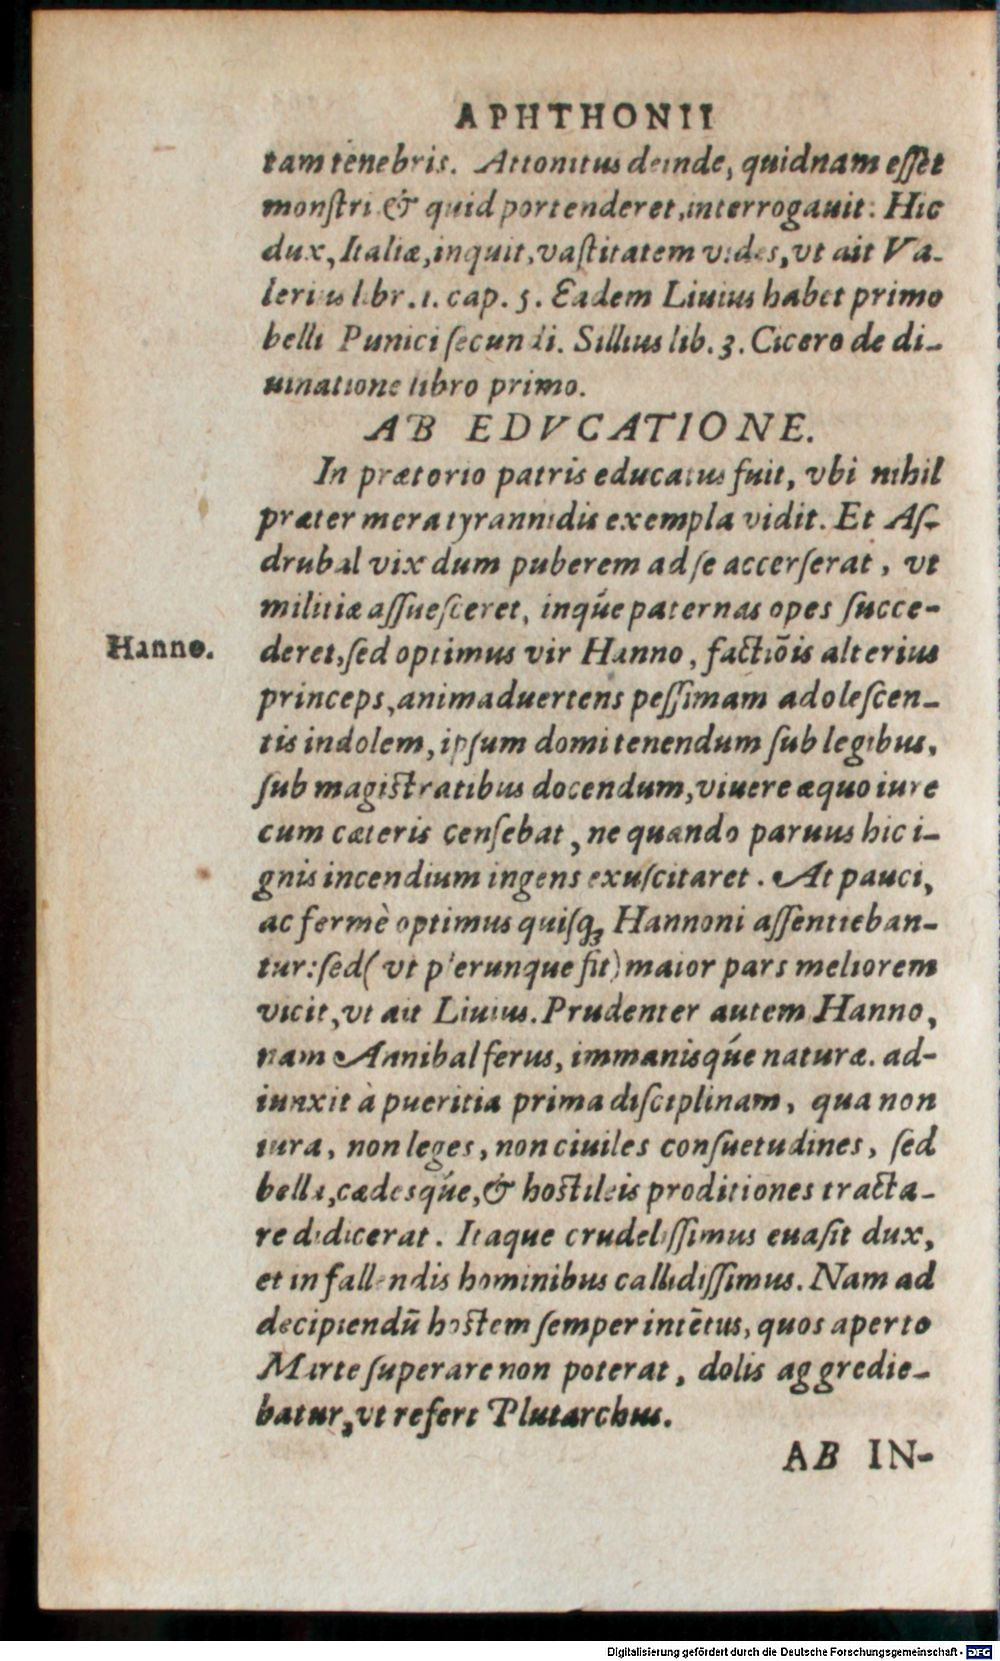 APHTHONII
tam tenebris. Attonitus deinde, quidnam eſſet
monſtri & quid portenderet, interrogauit: Hic
dux, Italiæ, inquit, vaſtitatem vides, vt ait Va-
lerius libr. 1. cap. 5. Eadem Liuius habet primo
belli Punici ſecundi. Sillius lib. 3. Cicero de di-
uinatione libro primo.
AB EDVCATIONE.
In prætorio patris educatus fuit, vbi nihil
præter mera tyrannidis exempla vidit. Et Aſ-
drubal vix dum puberem ad ſe accerſerat, vt
militiæ aſſueſceret, inq́ue paternas opes ſucce-
Hanno.
deret, ſed optimus vir Hanno, factiõis alterius
princeps, animaduertens peſſimam adoleſcen-
tis indolem, ipſum domi tenendum ſub legibus,
ſub magiſtratibus docendum, viuere æquo iure
cum cæteris cenſebat, ne quando paruus hic i-
gnis incendium ingens exuſcitaret. At pauci,
ac fermè optimus quiſq; Hannoni aſſentieban-
tur: ſed (vt plerunque fit) maior pars meliorem
vicit, vt ait Liuius. Prudenter autem Hanno,
nam Annibal ferus, immanisq́ue naturæ. ad-
iunxit à pueritia prima diſciplinam, qua non
iura, non leges, non ciuiles conſuetudines, ſed
bella, cædesq́ue, & hoſtileis proditiones tracta-
re didicerat. Itaque crudeliſſimus euaſit dux,
et in fallendis hominibus callidiſſimus. Nam ad
decipiendũ hoſtem ſemper intẽtus, quos aperto
Marte ſuperare non poterat, dolis aggredie-
batur, vt refert Plutarchus.
AB IN-
Digitalisierung gefördert durch die Deutsche Forschungsgemeinschaft - DFG